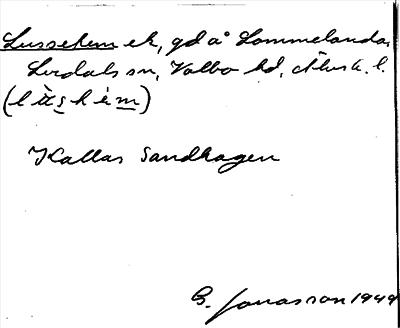 Lussehem ek, gd å Lommelanda,
Lerdals sn, Valbo hd, Älvsb. l.
Kallas Sandhagen
G. Jonasson 1949